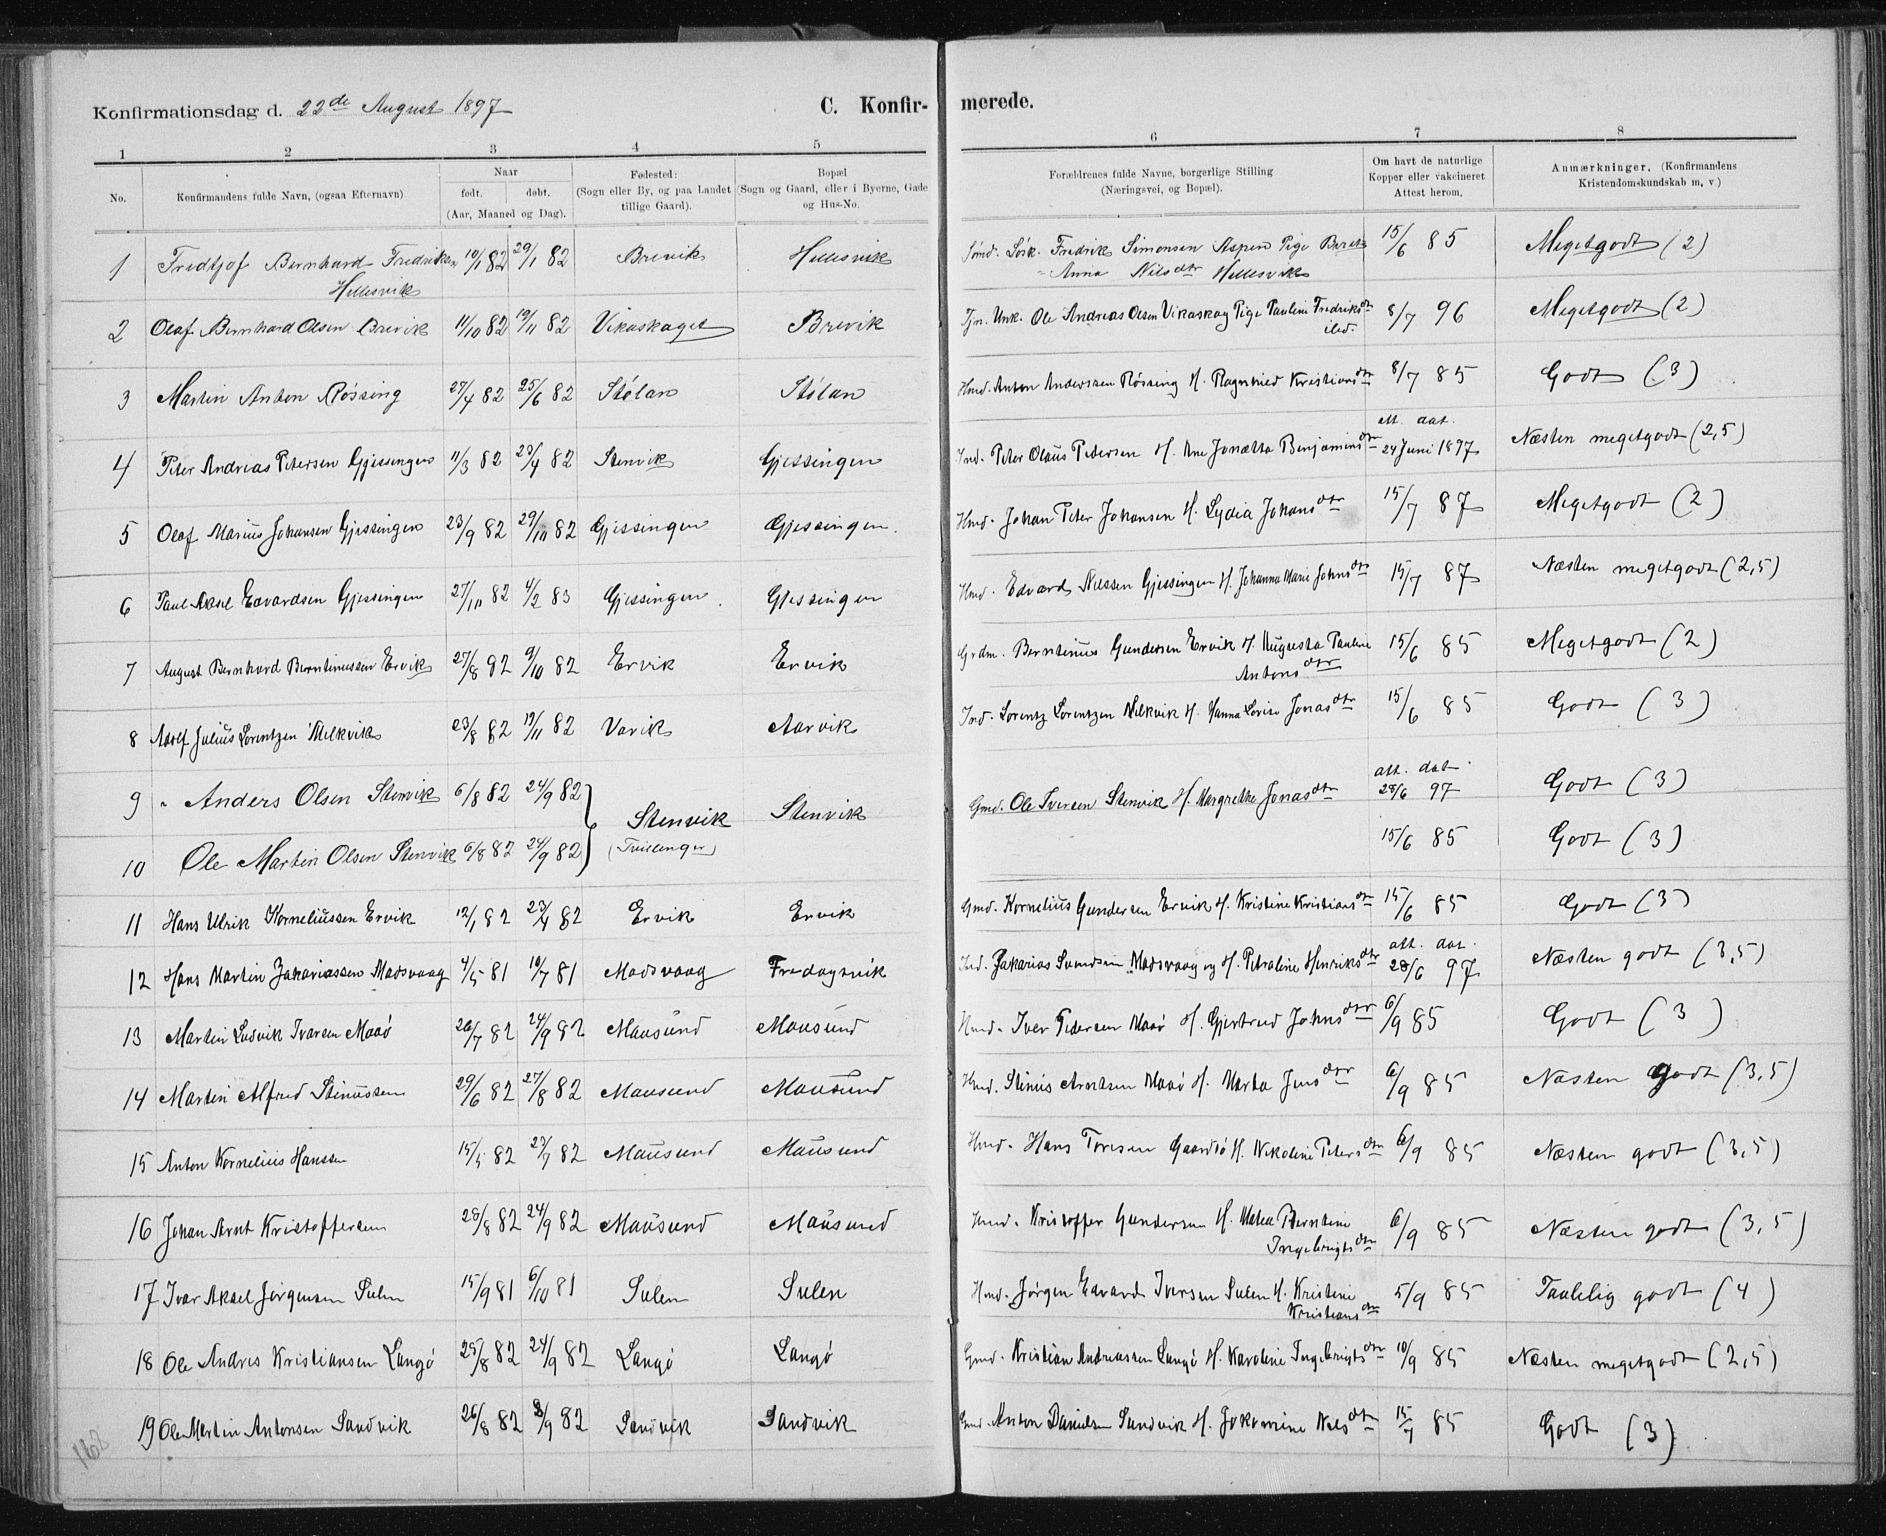 Konfirmationsdag d. 22de August 1897 C. Konfir- merede.
1 2 3 4 5 6 7 8
No. Konfirmandens fulde Navn, (ogsaa Efternavn) Naar født. døbt. (Aar, Maaned og Dag). Fødested: (Sogn eller By, og paa Landet tillige Gaard). Bopæl (Sogn og Gaard, eller i Byerne, Gade og Hus-No. Forældrenes fulde Navne, borgerlige Stilling (Næringsvei, og Bopæl). Om havt de naturlige Kopper eller vakcineret Attest herom. Anmærkninger. (Konfirmandens Kristendomskundskab m, v)
1 Fredtjof Bernhard Fredriksen 10/1 82 29/1 82 Brevik Hellesvik Fredrik Simonsen Aspen Pige 15/6 85 Megetgodt (2)
Hellesvik Anna Nilsdtr Hellesvik
2 Olaf Bernhard Olsen Brevik 11/10 82 19/11 82 Vikaskaget Brevik Tjn. Unk. Ole Andreas Olsen Vikaskag Pige Pauline Fredriksdtr 8/7 96 Megetgodt (2)
ibd.
3 Martin Anton Røssing 27/4 82 25/6 82 Stølan Stølan Hmd. Anton Anderssen Røssing H. Ragnhild Kristiansdtr 8/7 85 Godt (3)
att. dat.
4 Peter Andreas Petersen Gjessingen 11/3 82 23/4 82 Stenvik Gjessingen Ind. Peter Olaus Pedersen H. Ane Jonetta Benjaminsdtr 24 Juni 1897 Næsten megetgodt (2,5)
5 Olaf Marius Johansen Gjessingen 23/9 82 29/10 82 Gjessingen Gjessingen. Hmd. Johan Peter Johansen H. Lydia Johansdtr 15/7 87 Megetgodt (2)
6 Paul Aksel Edvardsen Gjessingen 27/10 82 4/2 83 Gjessingen. Gjessingen Hmd. Edvard Nilssen Gjessingen H. Johanna Marie Johnsdtr 15/7 87 Næsten megetgodt (2,5)
7 August Bernhard Berntinussen Ervik 27/8 82 9/10 82 Ervik Ervik Grdm. Berntinus Gundersen Ervik H. Augusta Pauline 15/6 85 Megetgodt (2)
Antonsdtr
8 Adolf Julius Lorentzen Melkvik 23/8 82 19/11 82 Varik Aarvik Ind. Lorentz Lorentzen Melkvik H. Hanna Lovise Jonasdtr 15/6 85 Godt (3)
att. dat.
9 Anders Olsen Stenvik 6/8 82 24/9 82 Stenvik Stenvik Gmd. Ole Iversen Stenvik H. Margrethe Jonasdtr 28/6 97 Godt (3)
10 Ole Martin Olsen Stenvik 6/8 82 24/9 82 (Tvillinger) 15/6 85 Godt (3)
11 Hans Ulrik Korneliussen Ervik 12/1 82 23/4 82 Ervik Ervik Gmd. Kornelius Gundersen Ervik H. Kristine Kristiansdtr 15/6 85 Godt (3)
att. dat.
12 Hans Martin Zakariassen Madsvaag 4/5 81 10/7 81 Madsvaag Fredagsvik Ind. Zakarias Svendsen Madsvaag og H. Petroline Henriksdtr 28/6 97 Næsten godt (3,5)
13 Martin Ludvik Iversen Maaø 26/7 82 24/9 82 Mausund Mausund Hmd. Iver Pedersen Maaø H. Gjertrud Johnsdtr 6/9 85 Godt (3)
14 Martin Alfred Stinussen 29/6 82 27/8 82 Mausund Mausund Hmd. Stinus Arntsen Maaø H. Marta Jensdtr 6/9 85 Næsten godt (3,5)
15 Anton Kornelius Hanssen 15/5 82 23/7 82 Mausund Mausund Hmd. Hans Toresen Gaardsø H. Nikoline Petersdtr 6/9 85 Næsten godt (3,5)
16 Johan Arnt Kristoffersen 28/8 82 24/9 82 Mausund Mausund Hmd. Kristoffer Gundersen H. Matea Berntine 6/9 85 Næsten godt (3,5)
Ingebrigtsdtr
17 Ivar Aksel Jørgensen Sulen 15/9 81 6/10 81 Sulen Sulen Hmd. Jørgen Edvard Iversen Sulen H. Kristine 5/9 85 Taalelig godt (4)
Kristiansdtr
18 Ole Andres Kristiansen Langø 25/8 82 24/9 82 Langø Langø Gmd. Kristian Andreassen Langø H. Karoline Ingebrigtsdtr 10/9 85 Næsten megetgodt (2,5)
19 Ole Martin Antonsen Sandvik 26/8 82 3/9 82 Sandvik Sandvik Gmd. Anton Danielsen Sandvik H. Jakomine Nilsdtr 15/7 85 Godt (3)
168